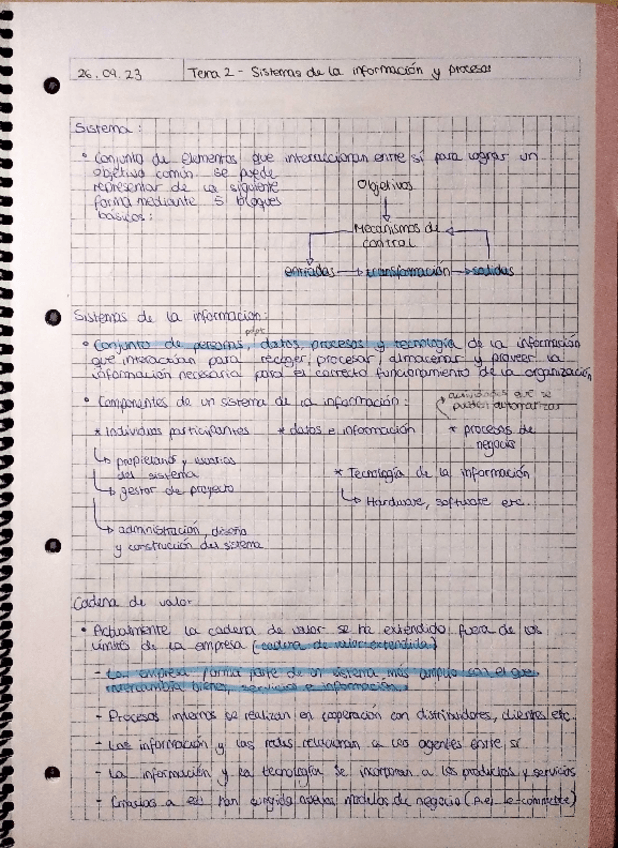 26.09.23
Tema 2 - Sistemas de la información y procesos
Sistema:
• Conjunto de elementos que interaccionan entre sí para lograr un
objetivo común. Se puede
representar de la siguiente
forma mediante 5 bloques
básicos:
Objetivos
Mecanismos de
control
entradas → transformación → salidas
Sistemas de la información:
pdpt
• Conjunto de personas, datos, procesos y tecnología de la información
que interactúan para recoger, procesar, almacenar y proveer la
información necesaria para el correcto funcionamiento de la organización
• Componentes de un sistema de la información:
actividades etc se
pueden automatizar
* Individuos participantes * datos e información * procesos de
negocio
↳ propietarios y usuarios
del sistema
↳ gestor de proyecto
↳ administración, diseño
y construcción del sistema
* Tecnología de la información
↳ Hardware, software etc.
Cadena de valor
• Actualmente la cadena de valor se ha extendido fuera de los
límites de la empresa (cadena de valor extendida)
- La empresa forma parte de un sistema más amplio con el que
intercambia bienes, servicios e información.
- Procesos internos se realizan en cooperación con distribuidores, clientes etc.
- Las información y las redes relacionan a los agentes entre sí
- La información y la tecnología se incorporan a los productos y servicios
- Gracias a eso han surgido nuevos modelos de negocio (p.ej. e-commerce)